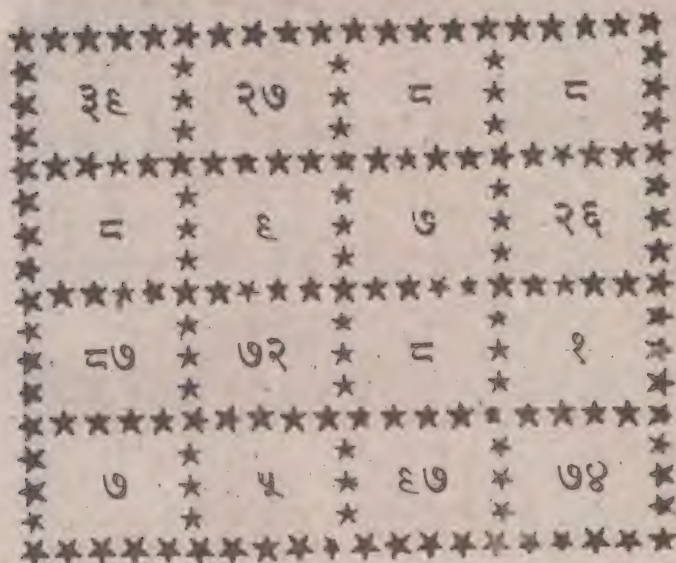 ३९ २७ ८ ८
८ ९ ७ २६
८७ ७२ ८ १
७ ५ ९७ ७४